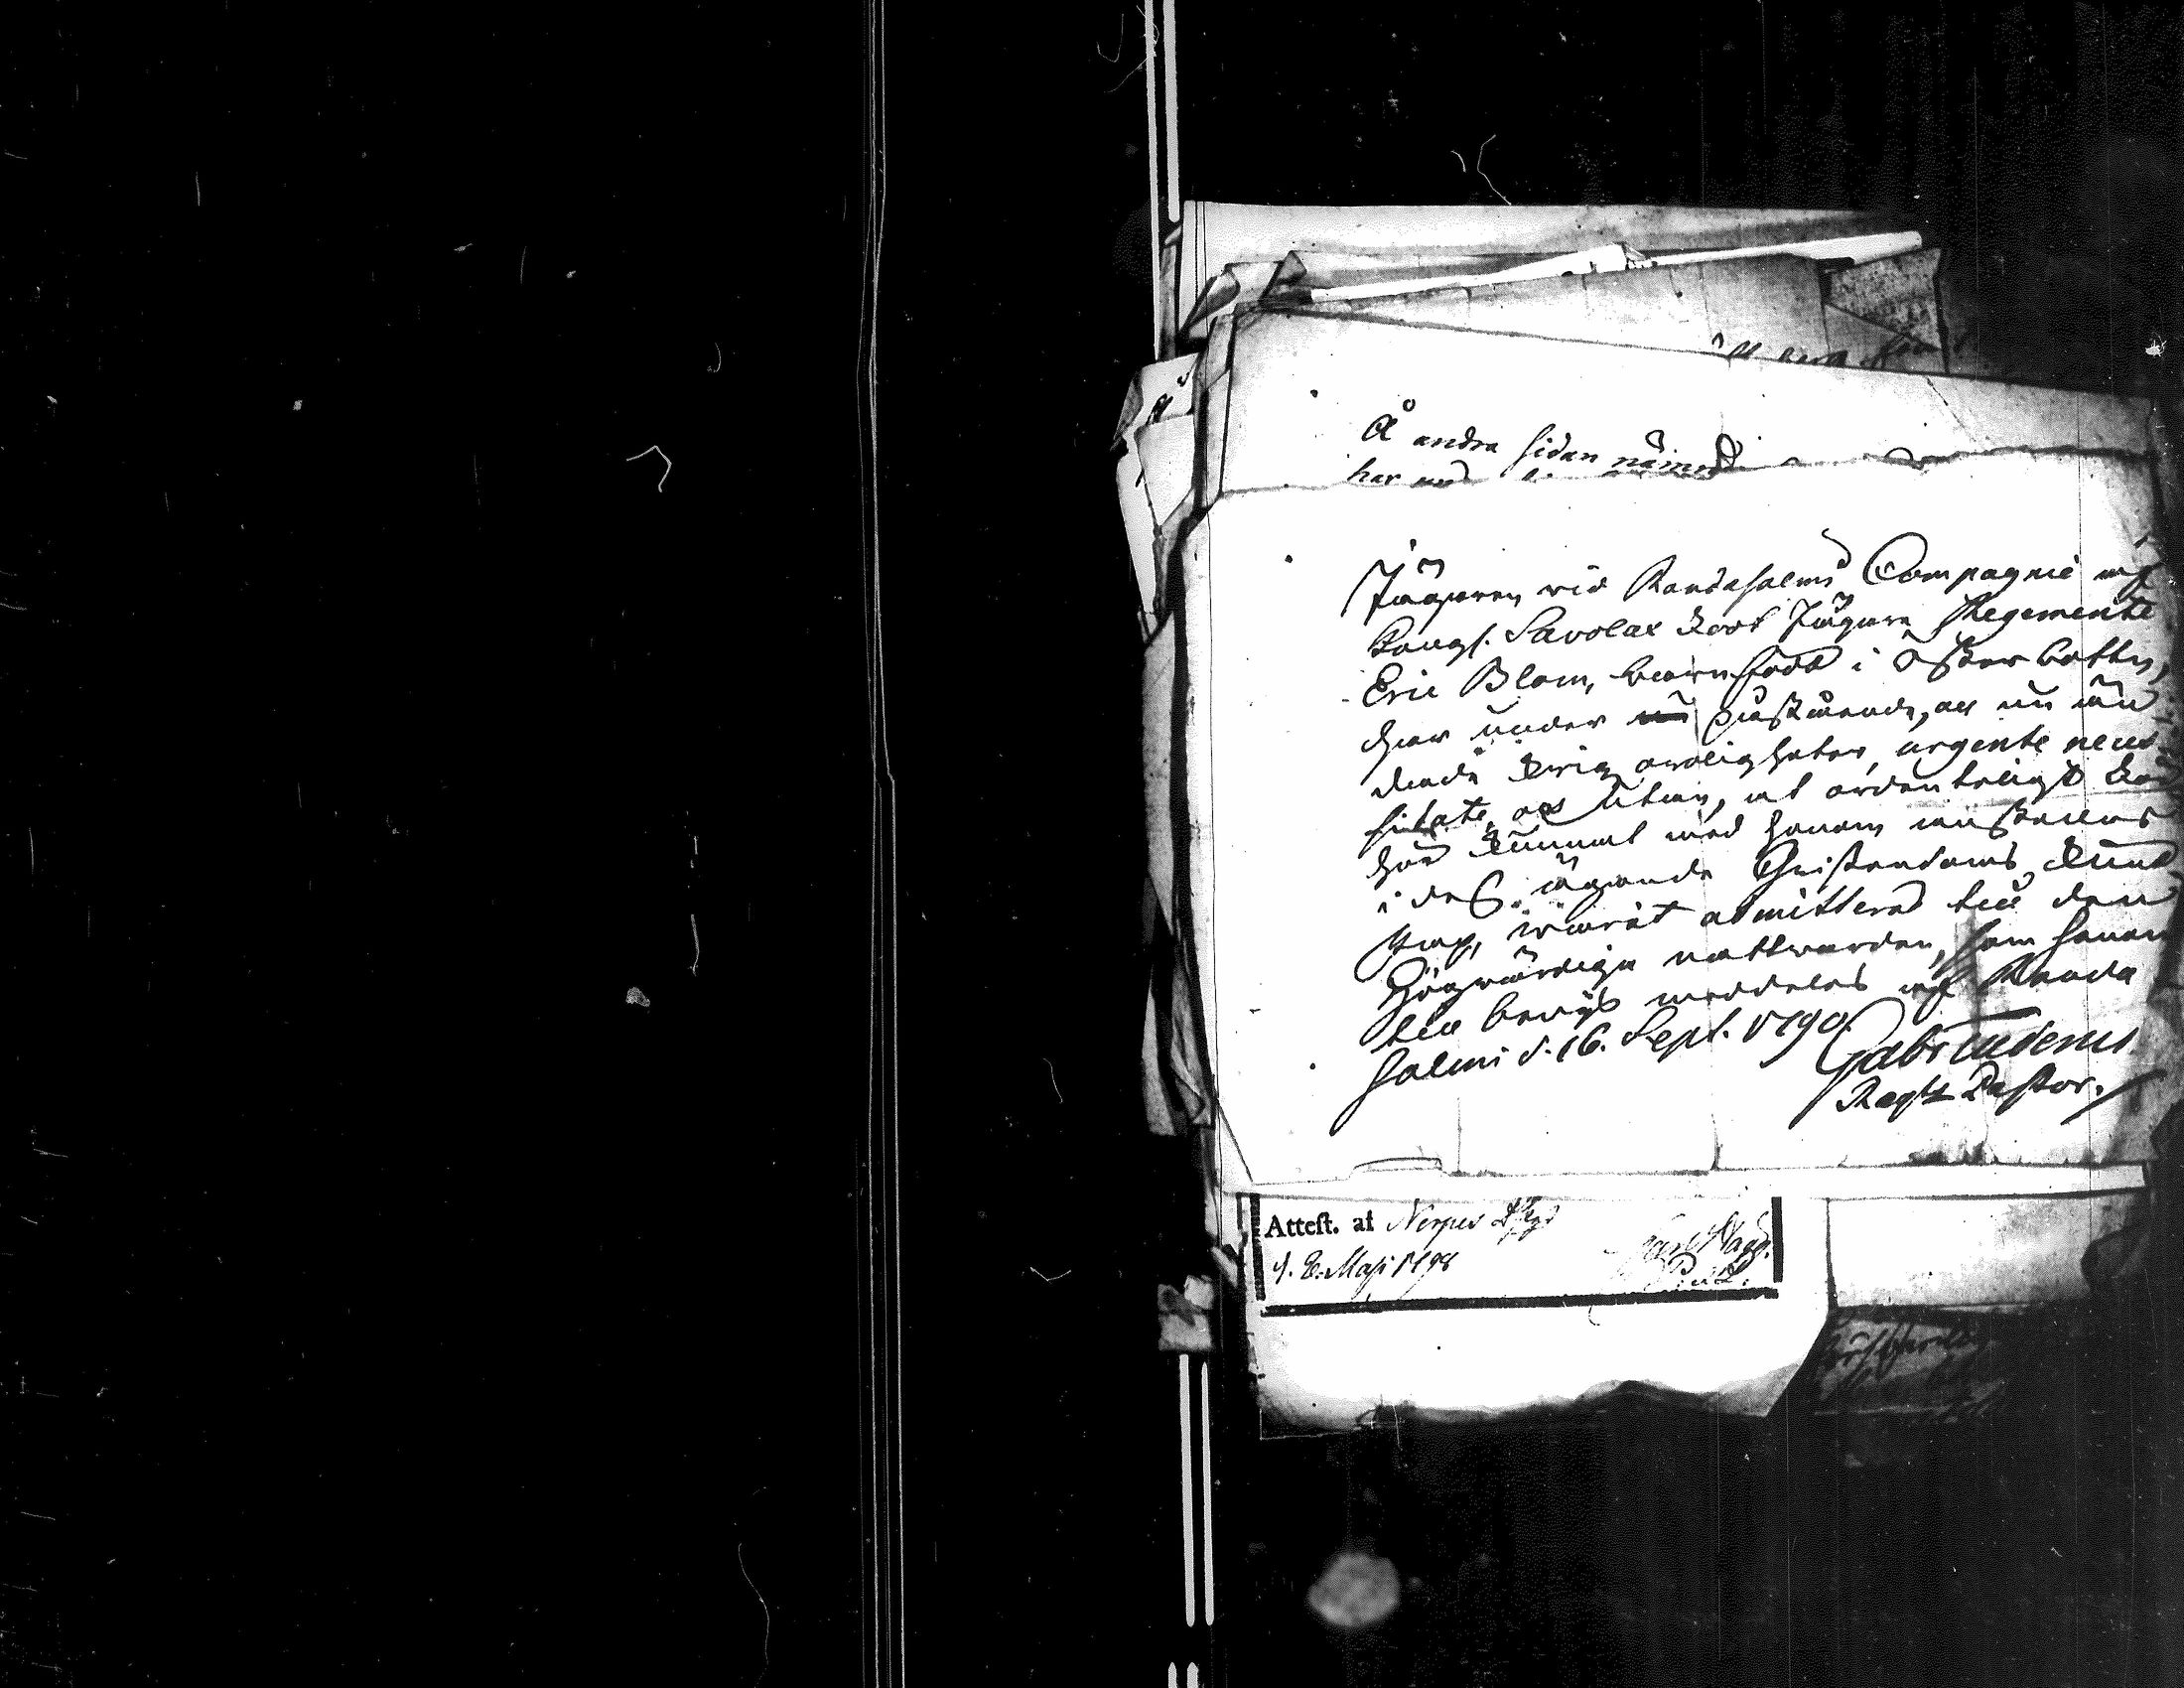 Å andra sidan nämnd
har
Jägaren vid Randasalmi Compagnie af
Kongl. Savolax Fot Jägare Regemente
Eric Blom, barnfödd i Österbotten,
har under påstående, all nu än
dende krigs oroligheter, urgente neces-
sitate, och utan, at ordenteligt för
hör kunnat med honom anställas
i dess ägande Christendoms kund
skap, warit admitterad till den
Högwärdiga nattwarden, som honom
till bewijs meddelas af Randa
salmi d. 16. Sept. 1790.
Gabr
Regts Pastor.
Attest. af Nerpes
d. 2. Maji 1798